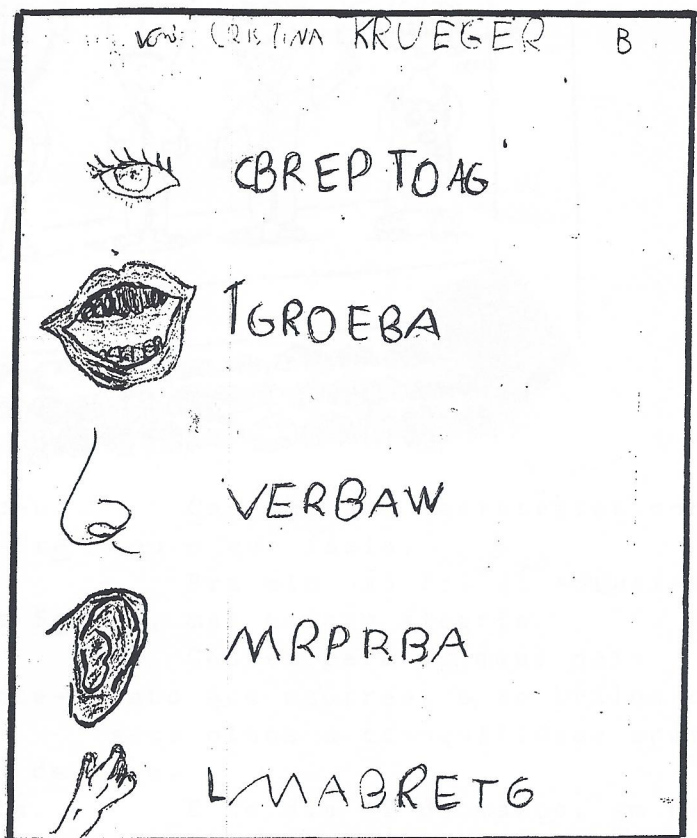 CRISTINA KRUEGER B
CBREPTOAG
TGROEBA
VERBAW
MRPRBA
LMABRETG